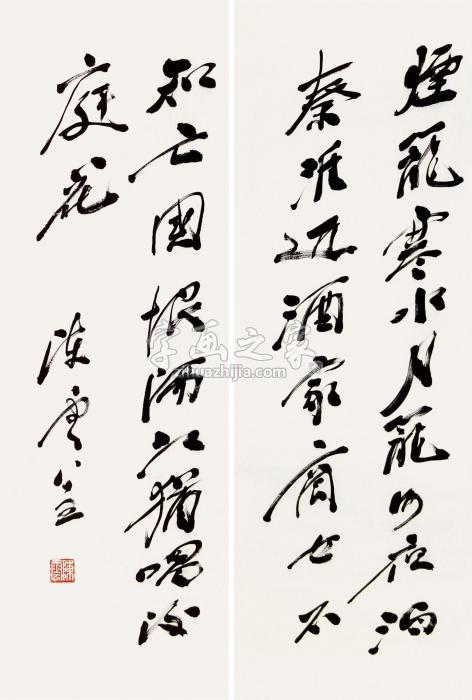 煙籠寒水月籠沙夜泊
秦淮近酒家商女不
知亡國恨隔江猶唱後
庭花
陳雲
字画之家
zihuazhijia.com